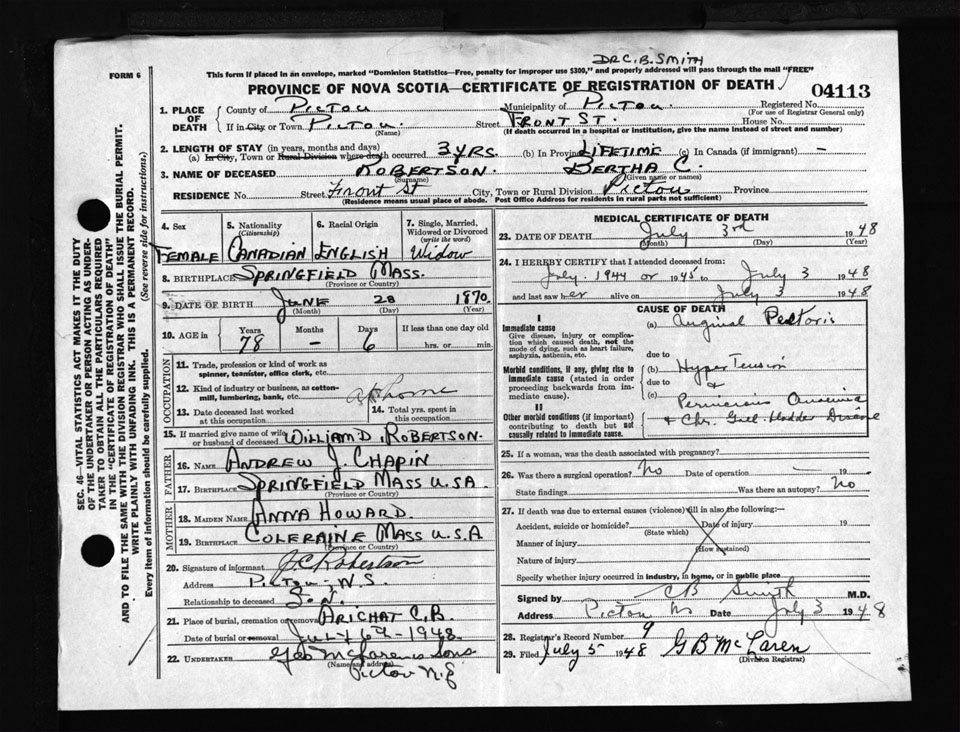 DR C. B. SMITH
FORM 6
This form if placed in an envelope, marked "Dominion Statistics—Free, penalty for improper use $300," and properly addressed will pass through the mail "FREE"
PROVINCE OF NOVA SCOTIA—CERTIFICATE OF REGISTRATION OF DEATH
04113
1. PLACE OF DEATH County of PICTOU Municipality of PICTOU. Registered No.
(For use of Registrar General only)
If in City or Town PICTOU. Street FRONT ST. House No.
(Name) (If death occurred in a hospital or institution, give the name instead of street and number)
2. LENGTH OF STAY (in years, months and days)
(a) In City, Town or Rural Division where death occurred 3 YRS. (b) In Province LIFETIME (c) In Canada (if immigrant) —
3. NAME OF DECEASED ROBERTSON. BERTHA C.
(Surname) (Given name or names)
RESIDENCE No. Street Front St City, Town or Rural Division Pictou Province
(Residence means usual place of abode. Post Office Address for residents in rural parts not sufficient)
4. Sex FEMALE
5. Nationality (Citizenship) CANADIAN
6. Racial Origin ENGLISH
7. Single, Married, Widowed or Divorced (write the word) Widow
8. BIRTHPLACE SPRINGFIELD MASS.
(Province or Country)
9. DATE OF BIRTH JUNE 28 1870.
(Month) (Day) (Year)
10. AGE in Years Months Days If less than one day old
78 — 6 hrs. or min.
OCCUPATION
11. Trade, profession or kind of work as spinner, teamster, office clerk, etc.
12. Kind of industry or business, as cotton-mill, lumbering, bank, etc. at home
13. Date deceased last worked at this occupation
14. Total yrs. spent in this occupation
15. If married give name of wife or husband of deceased WILLIAM D. ROBERTSON.
FATHER
16. NAME ANDREW J. CHAPIN
17. BIRTHPLACE SPRINGFIELD MASS U.S.A
(Province or Country)
MOTHER
18. MAIDEN NAME ANNA HOWARD.
19. BIRTHPLACE COLERAINE MASS U.S.A
(Province or Country)
20. Signature of informant J.C. Robertson
Address Pictou. N.S.
Relationship to deceased
21. Place of burial, cremation or removal ARICHAT C.B.
Date of burial or removal JULY 6th - 1948.
22. UNDERTAKER Geo McLaren & Sons
(Name and address)
Pictou N.S
MEDICAL CERTIFICATE OF DEATH
23. DATE OF DEATH July 3rd 1948
(Month) (Day) (Year)
24. I HEREBY CERTIFY that I attended deceased from:
July. 1944 or 1945 to July 3 1948
and last saw her alive on July 3 1948
CAUSE OF DEATH
I
Immediate cause
Give disease, injury or complication which caused death, not the mode of dying, such as heart failure, asphyxia, asthenia, etc.
(a) Anginal Pectoris
due to
Morbid conditions, if any, giving rise to immediate cause (stated in order proceeding backwards from immediate cause).
(b) Hyper Tension
due to &
(c) Pernicious Anaemia
II
Other morbid conditions (if important) contributing to death but not causally related to immediate cause.
& Chr. Gall-bladder Disease
25. If a woman, was the death associated with pregnancy?
26. Was there a surgical operation? No Date of operation — 19 —
State findings Was there an autopsy? No
27. If death was due to external causes (violence) fill in also the following:—
Accident, suicide or homicide? Date of injury 19
(State which)
Manner of injury
(How sustained)
Nature of injury
Specify whether injury occurred in industry, in home, or in public place
Signed by C B Smith M.D.
Address Pictou NS Date July 3 1948
28. Registrar's Record Number 9
29. Filed July 5 1948 G B McLaren
(Division Registrar)
SEC. 46—VITAL STATISTICS ACT MAKES IT THE DUTY
OF THE UNDERTAKER OR PERSON ACTING AS UNDER-
TAKER TO OBTAIN ALL THE PARTICULARS REQUIRED
IN THE "CERTIFICATE OF REGISTRATION OF DEATH"
AND TO FILE THE SAME WITH THE DIVISION REGISTRAR WHO SHALL ISSUE THE BURIAL PERMIT.
WRITE PLAINLY WITH UNFADING INK. THIS IS A PERMANENT RECORD.
Every item of information should be carefully supplied. (See reverse side for instructions.)